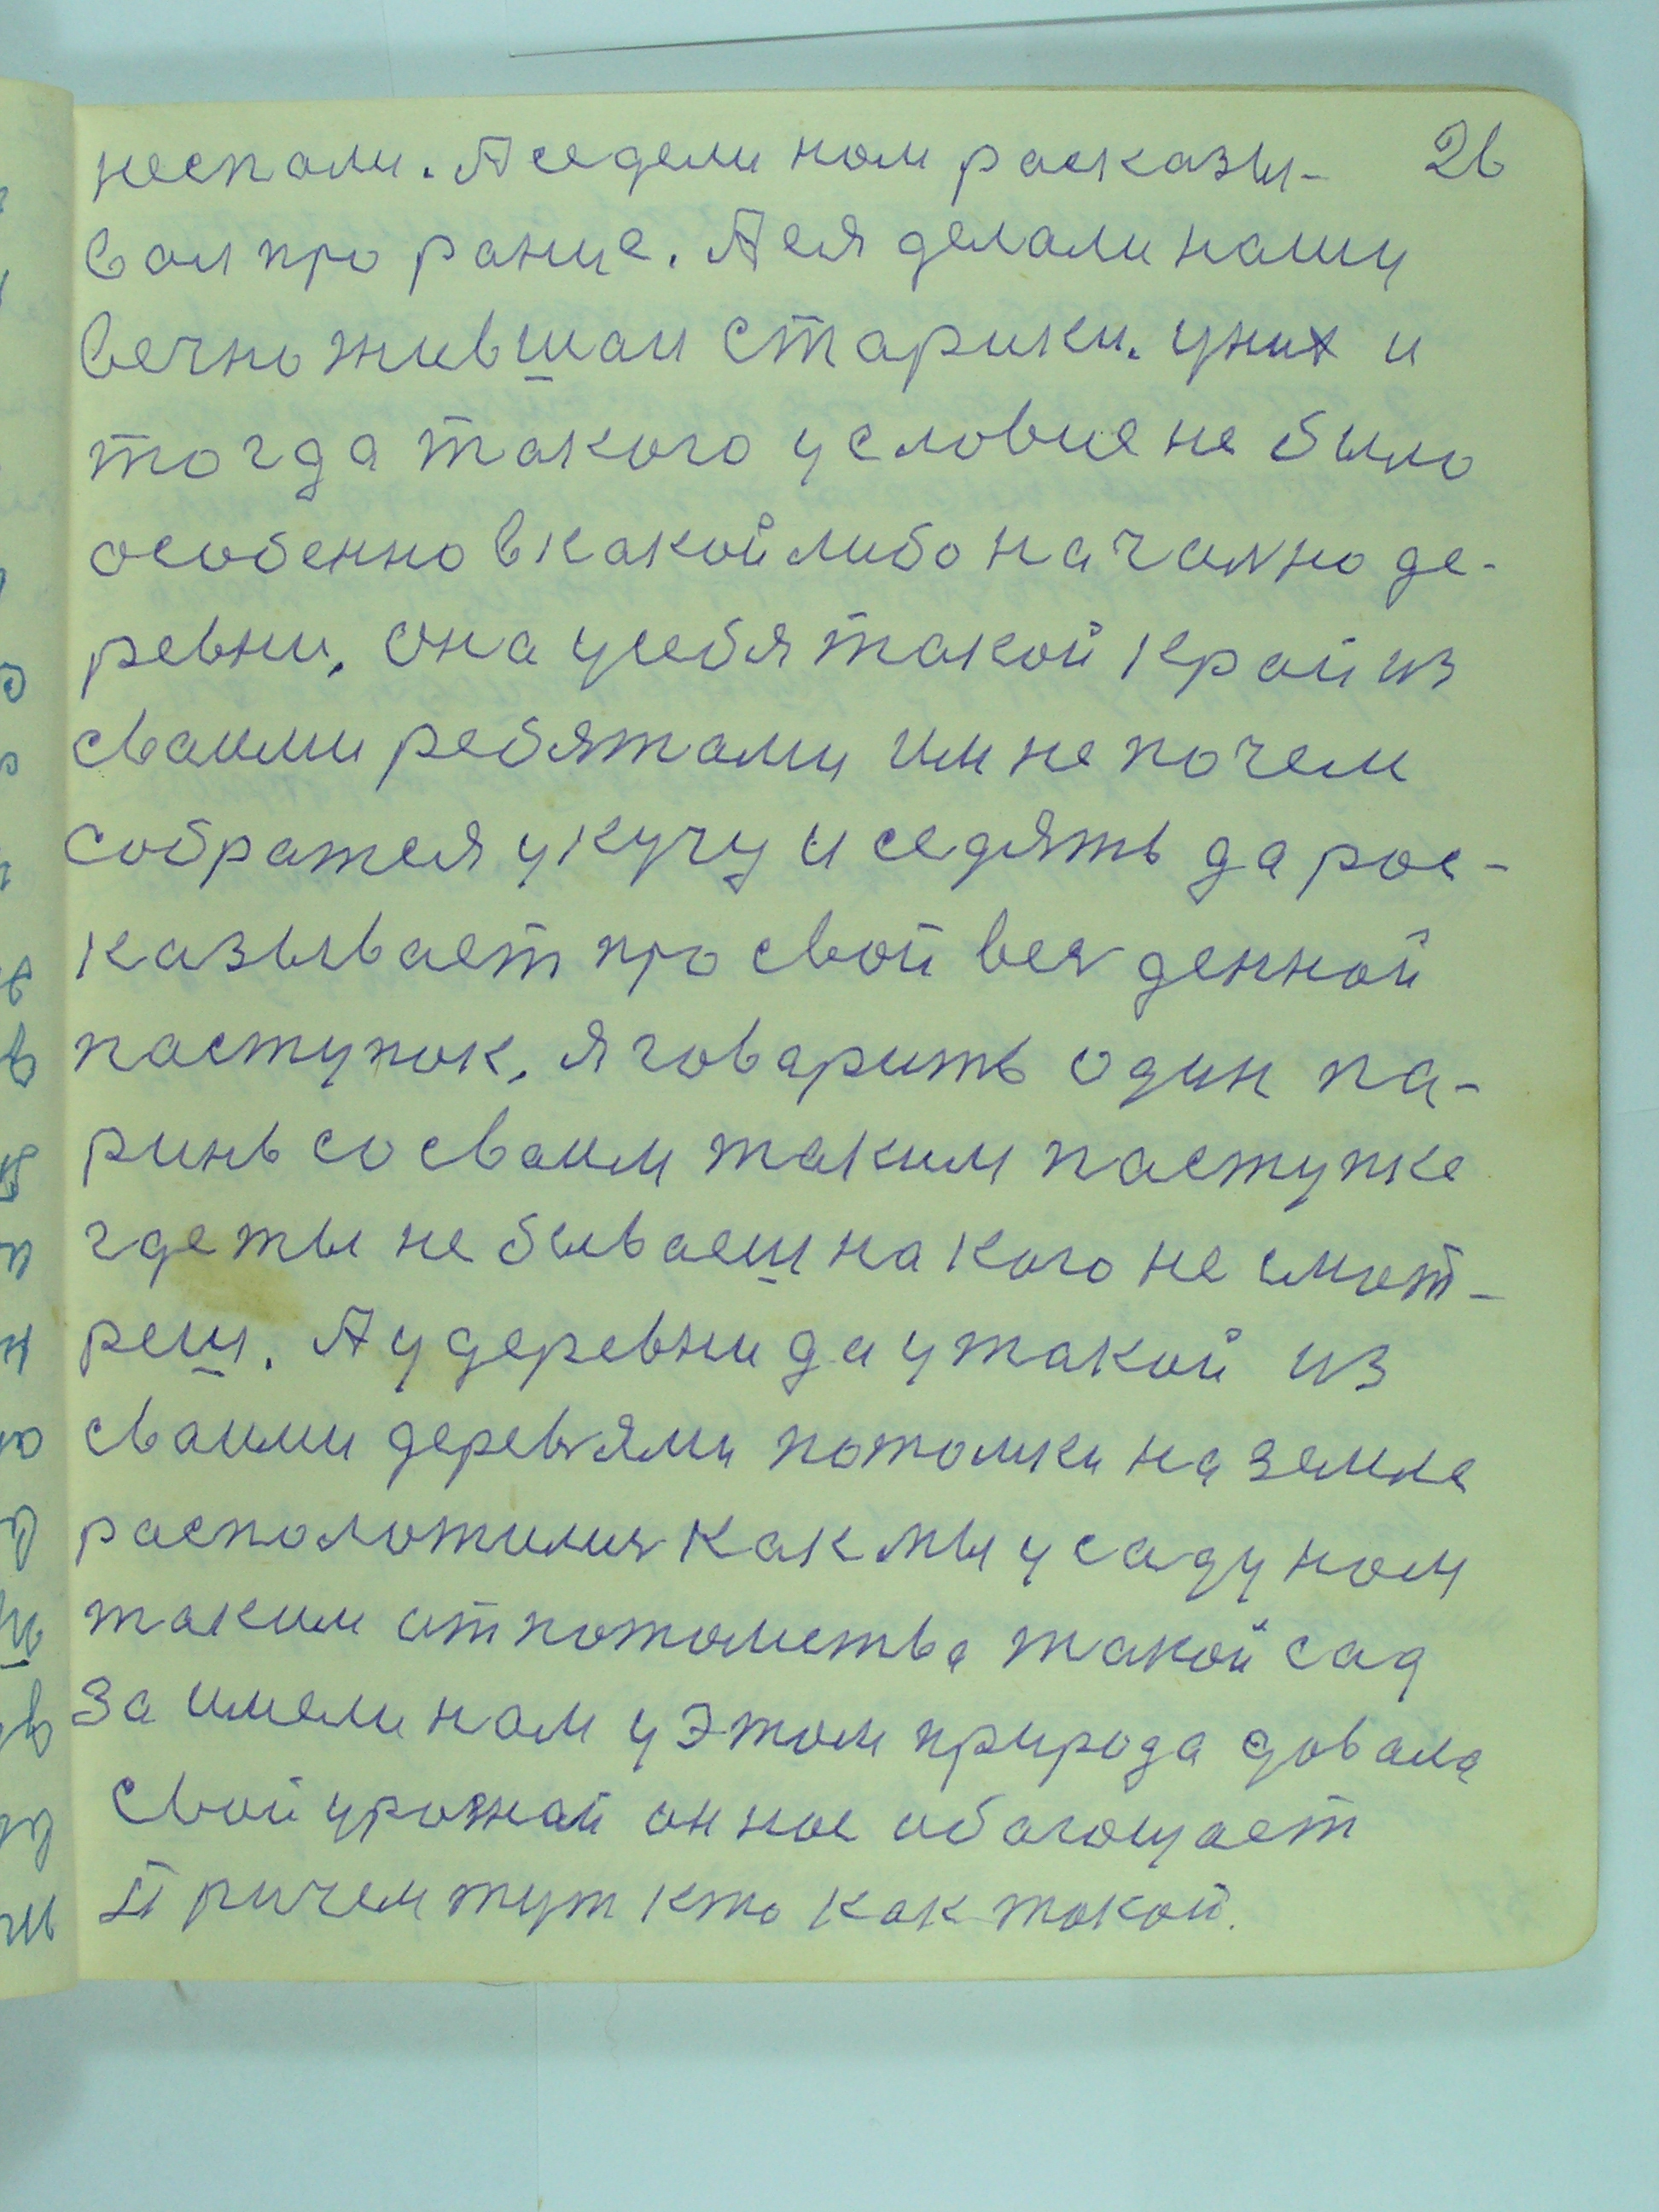 неспали. А седели нам расказы- 26
вал про ранше. А ся делали нашу
вечно жившаи старики. у них и
тогда такого условие не было
особенно в какой либо началного де-
ревни, она у себя такой край из
сваими ребятами им не почем
собратся у кучу и седять да рос-
казывает про свой вся денной
паступок, я говарить один па-
ринь со сваим таким паступке
где ты не бываеш на кого не смот-
реш. А у деревни да у такой из
сваими деревями потомки на земле
расположился как мы у саду нам
таким от потомства такой сад
за имели нам у этом природа давала
свой урожай он нас обагощает
Причем тут кто как такой.